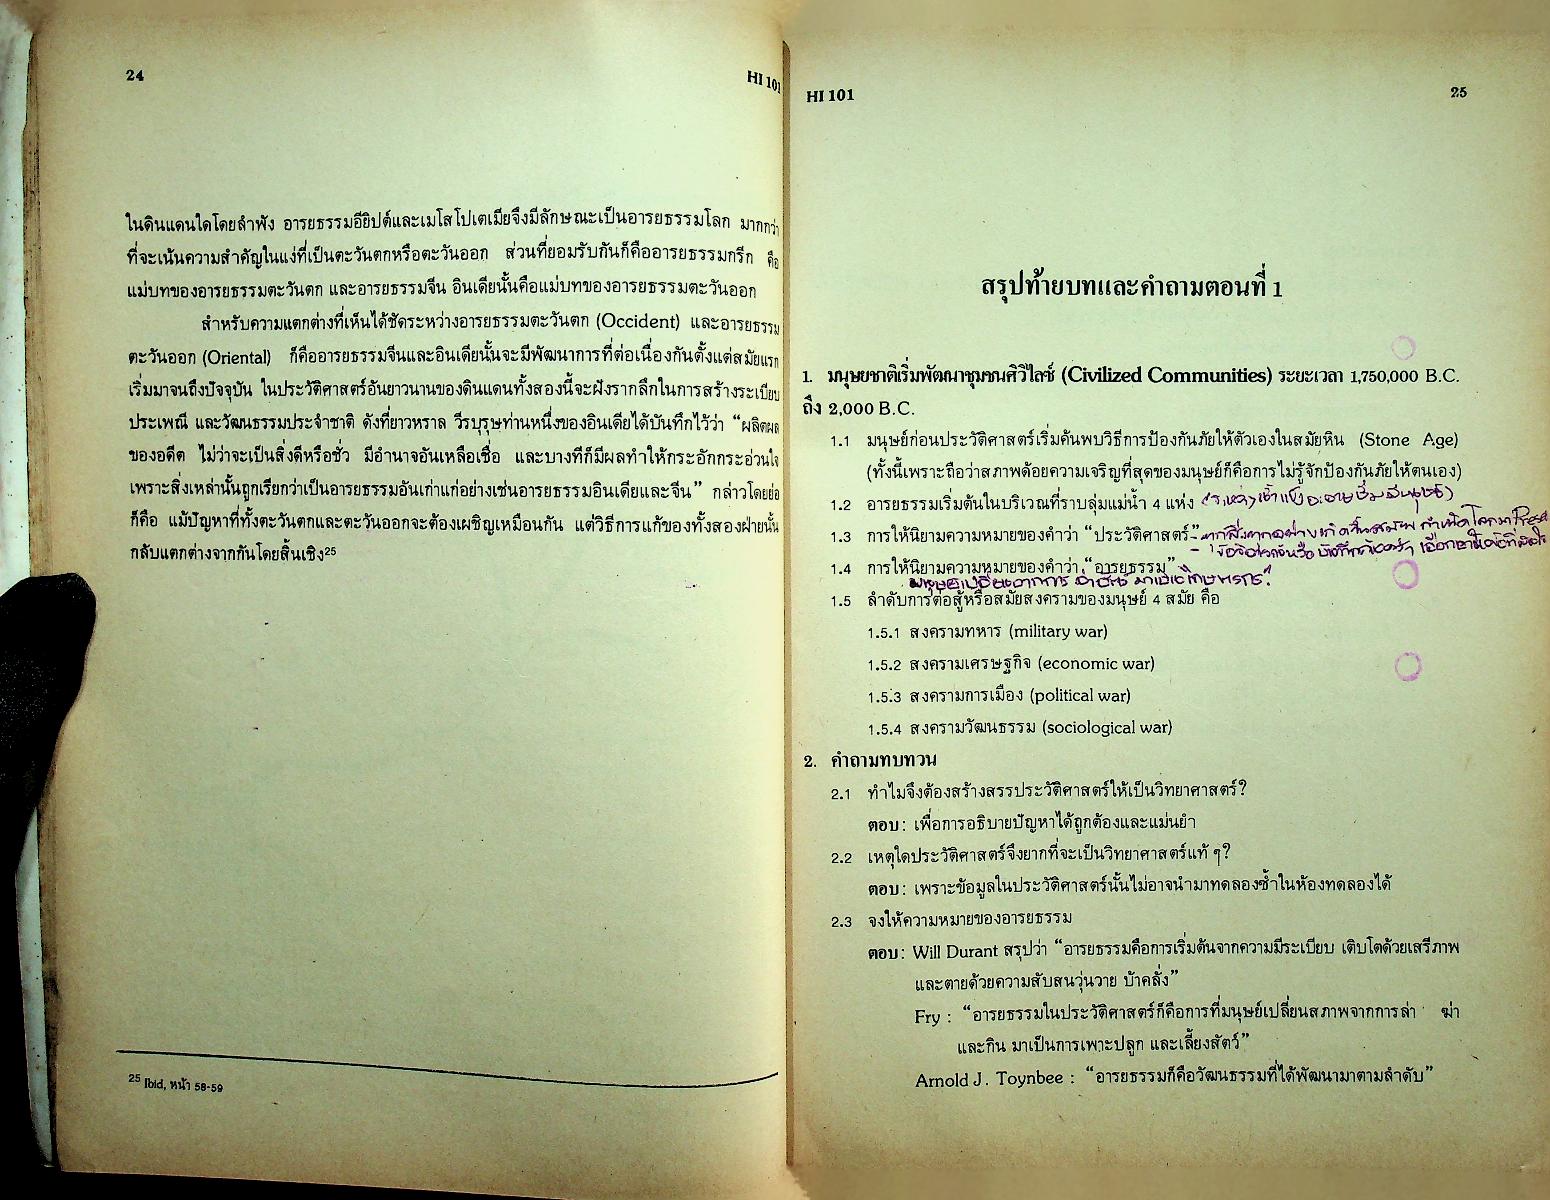 24
HI 101
ในดินแดนใดโดยลำพัง อารยธรรมอียิปต์และเมโสโปเตเมียจึงมีลักษณะเป็นอารยธรรมโลก มากกว่า
ที่จะเน้นความสำคัญในแง่ที่เป็นตะวันตกหรือตะวันออก ส่วนที่ยอมรับกันก็คืออารยธรรมกรีก คือ
แม่บทของอารยธรรมตะวันตก และอารยธรรมจีน อินเดียนั้นคือแม่บทของอารยธรรมตะวันออก
สำหรับความแตกต่างที่เห็นได้ชัดระหว่างอารยธรรมตะวันตก (Occident) และอารยธรรม
ตะวันออก (Oriental) ก็คืออารยธรรมจีนและอินเดียนั้นจะมีพัฒนาการที่ต่อเนื่องกันตั้งแต่สมัยแรก
เริ่มมาจนถึงปัจจุบัน ในประวัติศาสตร์อันยาวนานของดินแดนทั้งสองนี้จะฝังรากลึกในการสร้างระเบียบ
ประเพณี และวัฒนธรรมประจำชาติ ดังที่ยาวหราล วีรบุรุษท่านหนึ่งของอินเดียได้บันทึกไว้ว่า “ผลิตผล
ของอดีต ไม่ว่าจะเป็นสิ่งดีหรือชั่ว มีอำนาจอันเหลือเชื่อ และบางทีก็มีผลทำให้กระอักกระอ่วนใจ
เพราะสิ่งเหล่านั้นถูกเรียกว่าเป็นอารยธรรมอันเก่าแก่อย่างเช่นอารยธรรมอินเดียและจีน” กล่าวโดยย่อ
ก็คือ แม้ปัญหาที่ทั้งตะวันตกและตะวันออกจะต้องเผชิญเหมือนกัน แต่วิธีการแก้ของทั้งสองฝ่ายนั้น
กลับแตกต่างจากกันโดยสิ้นเชิง25
25 Ibid, หน้า 58-59
HI 101
25
สรุปท้ายบทและคำถามตอนที่ 1
1. มนุษยชาติเริ่มพัฒนาชุมชนศิวิไลซ์ (Civilized Communities) ระยะเวลา 1,750,000 B.C.
ถึง 2,000 B.C.
1.1 มนุษย์ก่อนประวัติศาสตร์เริ่มค้นพบวิธีการป้องกันภัยให้ตัวเองในสมัยหิน (Stone Age)
(ทั้งนี้เพราะถือว่าสภาพด้อยความเจริญที่สุดของมนุษย์ก็คือการไม่รู้จักป้องกันภัยให้ตนเอง)
1.2 อารยธรรมเริ่มต้นในบริเวณที่ราบลุ่มแม่น้ำ 4 แห่ง
1.3 การให้นิยามความหมายของคำว่า “ประวัติศาสตร์”
1.4 การให้นิยามความหมายของคำว่า “อารยธรรม”
1.5 ลำดับการต่อสู้หรือสมัยสงครามของมนุษย์ 4 สมัย คือ
1.5.1 สงครามทหาร (military war)
1.5.2 สงครามเศรษฐกิจ (economic war)
1.5.3 สงครามการเมือง (political war)
1.5.4 สงครามวัฒนธรรม (sociological war)
2. คำถามทบทวน
2.1 ทำไมจึงต้องสร้างสรรประวัติศาสตร์ให้เป็นวิทยาศาสตร์?
ตอบ : เพื่อการอธิบายปัญหาได้ถูกต้องและแม่นยำ
2.2 เหตุใดประวัติศาสตร์จึงยากที่จะเป็นวิทยาศาสตร์แท้ ๆ?
ตอบ : เพราะข้อมูลในประวัติศาสตร์นั้นไม่อาจนำมาทดลองซ้ำในห้องทดลองได้
2.3 จงให้ความหมายของอารยธรรม
ตอบ : Will Durant สรุปว่า “อารยธรรมคือการเริ่มต้นจากความมีระเบียบ เติบโตด้วยเสรีภาพ
และตายด้วยความสับสนวุ่นวาย บ้าคลั่ง”
Fry : “อารยธรรมในประวัติศาสตร์ก็คือการที่มนุษย์เปลี่ยนสภาพจากการล่า ฆ่า
และกิน มาเป็นการเพาะปลูก และเลี้ยงสัตว์”
Arnold J. Toynbee : “อารยธรรมก็คือวัฒนธรรมที่ได้พัฒนามาตามลำดับ”